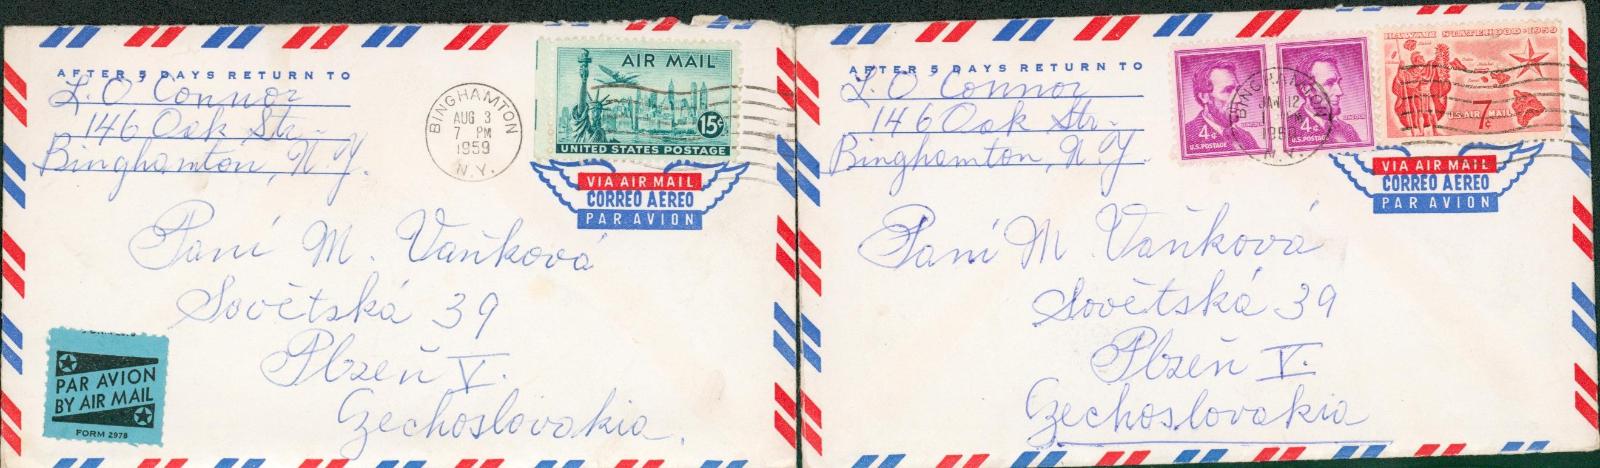 AFTER 5 DAYS RETURN TO
L. O Connor
146 Oak Str.
Binghamton, N. Y.
BINGHAMTON
AUG 3
7 PM
1959
N.Y.
AIR MAIL
15¢
UNITED STATES POSTAGE
VIA AIR MAIL
CORREO AEREO
PAR AVION
Paní M. Vaňková
Sovětská 39
Plzeň V.
Czechoslovakia.
PAR AVION
BY AIR MAIL
FORM 2978
AFTER 5 DAYS RETURN TO
L. O Connor
146 Oak Str.
Binghamton, N. Y.
4¢
U.S. POSTAGE
LINCOLN
4¢
U.S. POSTAGE
LINCOLN
BINGHAMTON
JAN 12
N.Y.
HAWAII STATEHOOD · 1959
7¢
U.S. AIR MAIL
VIA AIR MAIL
CORREO AEREO
PAR AVION
Paní M. Vaňková
Sovětská 39
Plzeň V.
Czechoslovakia